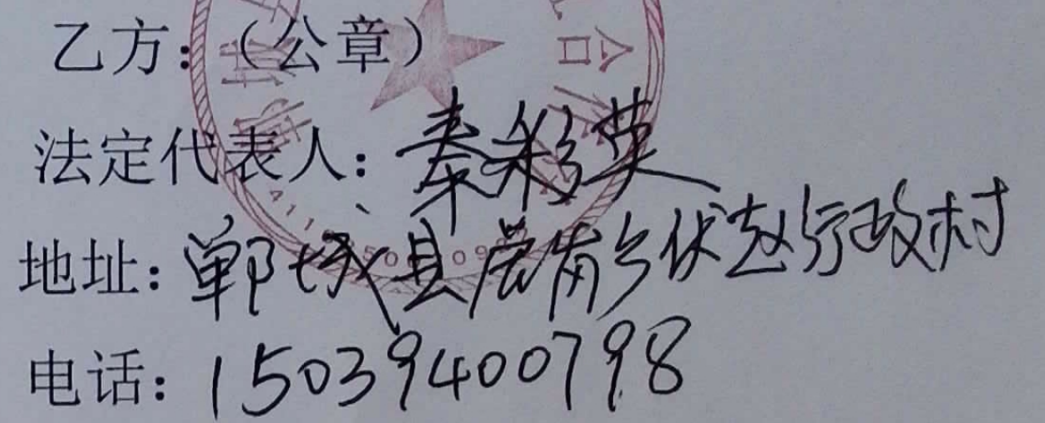 乙方：（公章）
法定代表人：秦彩英
地址：郸城县岗乡伏赵行政村
电话：15039400798